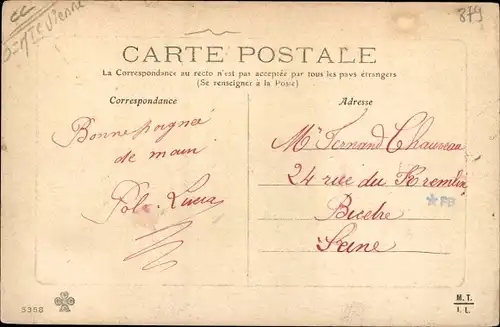 879
CARTE POSTALE
La Correspondance au recto n'est pas acceptée par tous les pays étrangers
(Se renseigner à la Poste)
Correspondance
Adresse
Bonne poignée
de main
Mr Fernand Chauveau
24 rue du Kremlin
Bicetre
Seine
*PB
5358
M.T.
I.L.